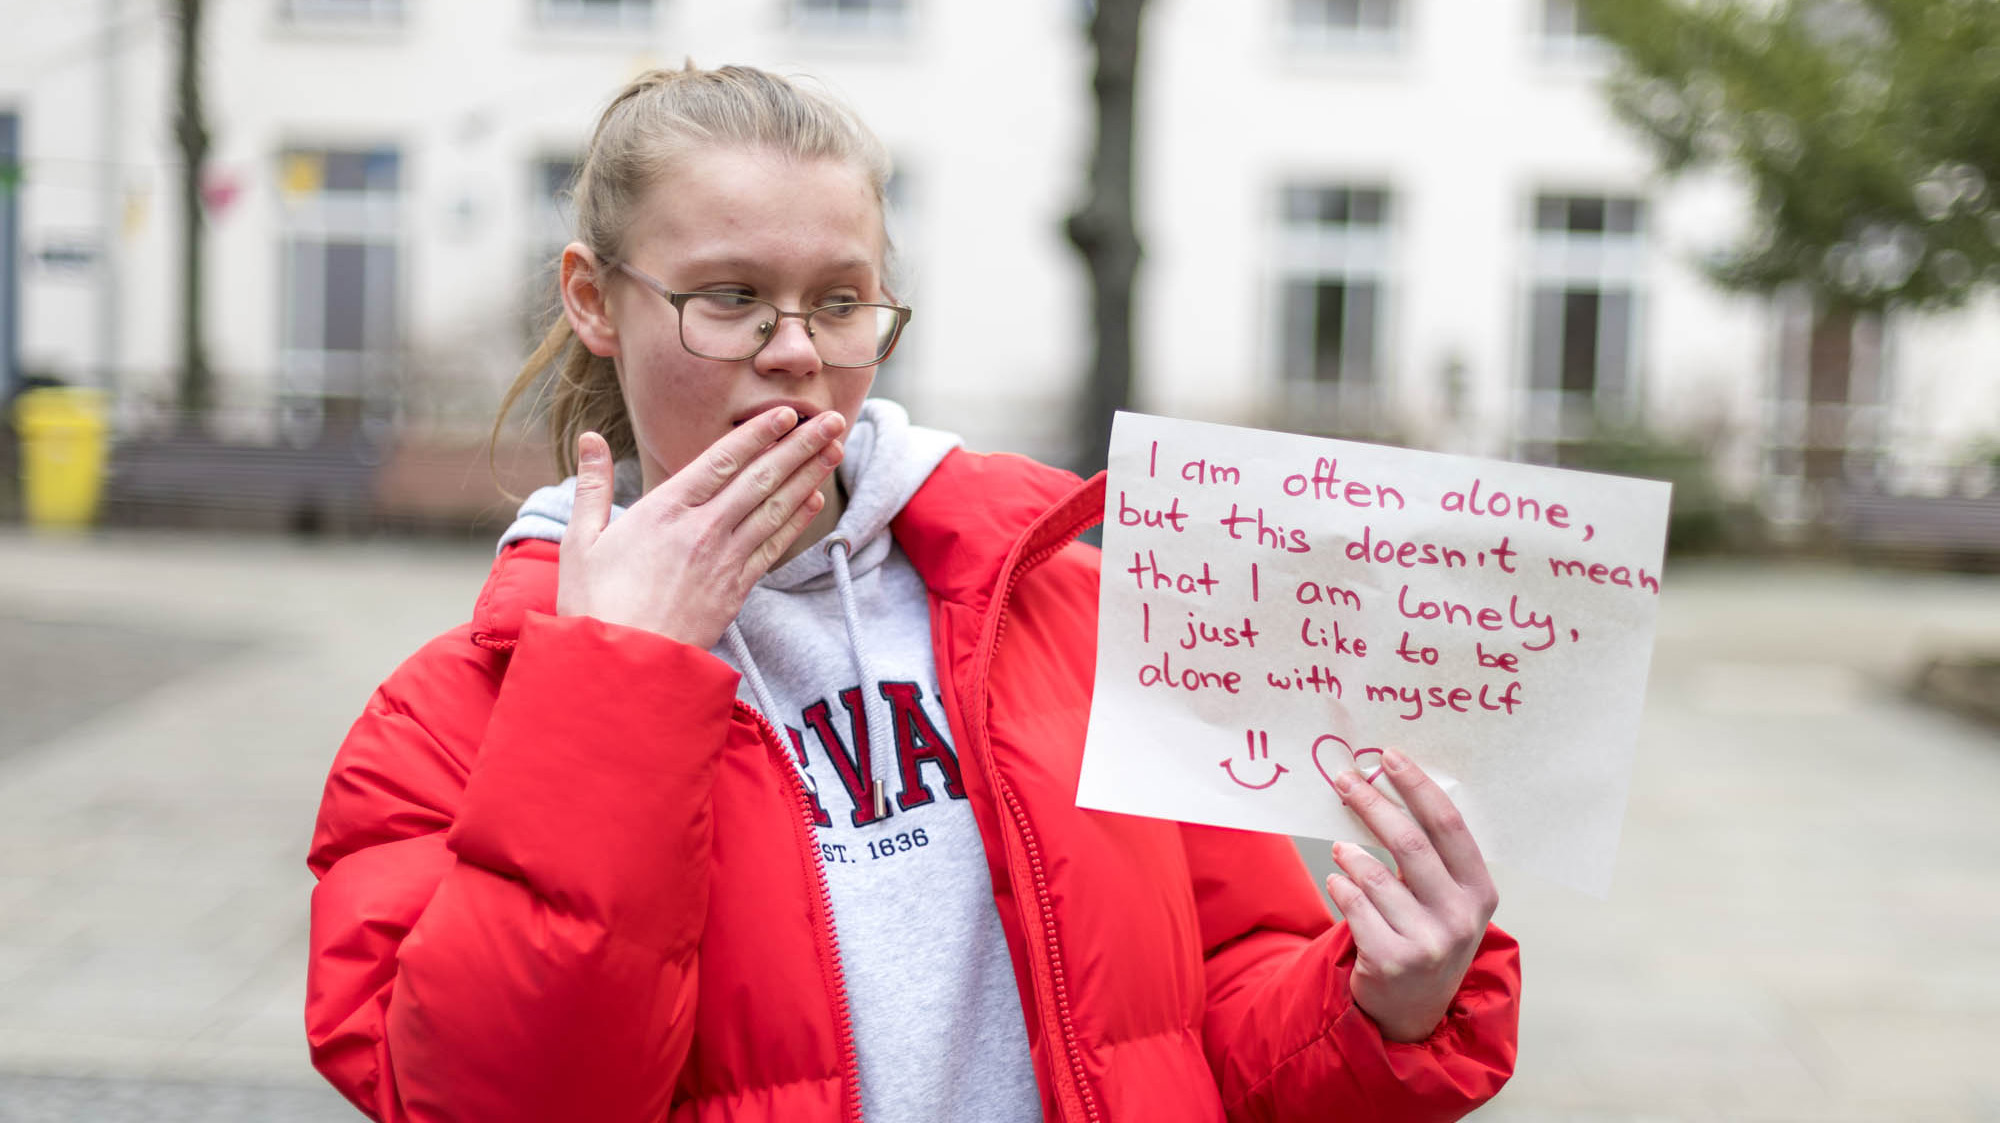 I am often alone,
but this doesn't mean
that I am lonely,
I just like to be
alone with myself
RVA
ST. 1636